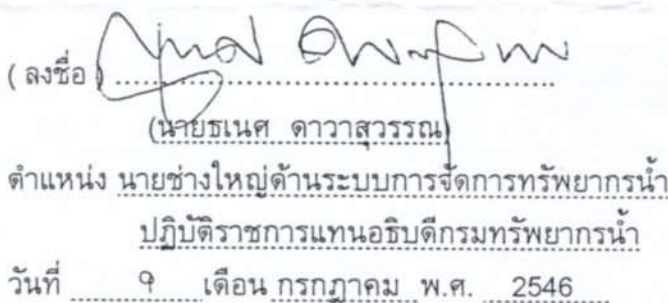 ( ลงชื่อ )
(นายธเนศ ดาวาสุวรรณ)
ตำแหน่ง นายช่างใหญ่ด้านระบบการจัดการทรัพยากรน้ำ
ปฏิบัติราชการแทนอธิบดีกรมทรัพยากรน้ำ
วันที่ ๑ เดือน กรกฎาคม พ.ศ. 2546